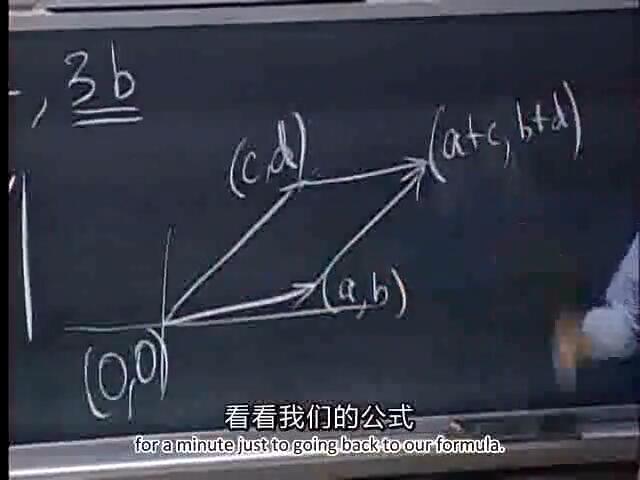 , 3b
(c,d)
(a+c, b+d)
(a,b)
(0,0)
看看我们的公式
for a minute just to going back to our formula.